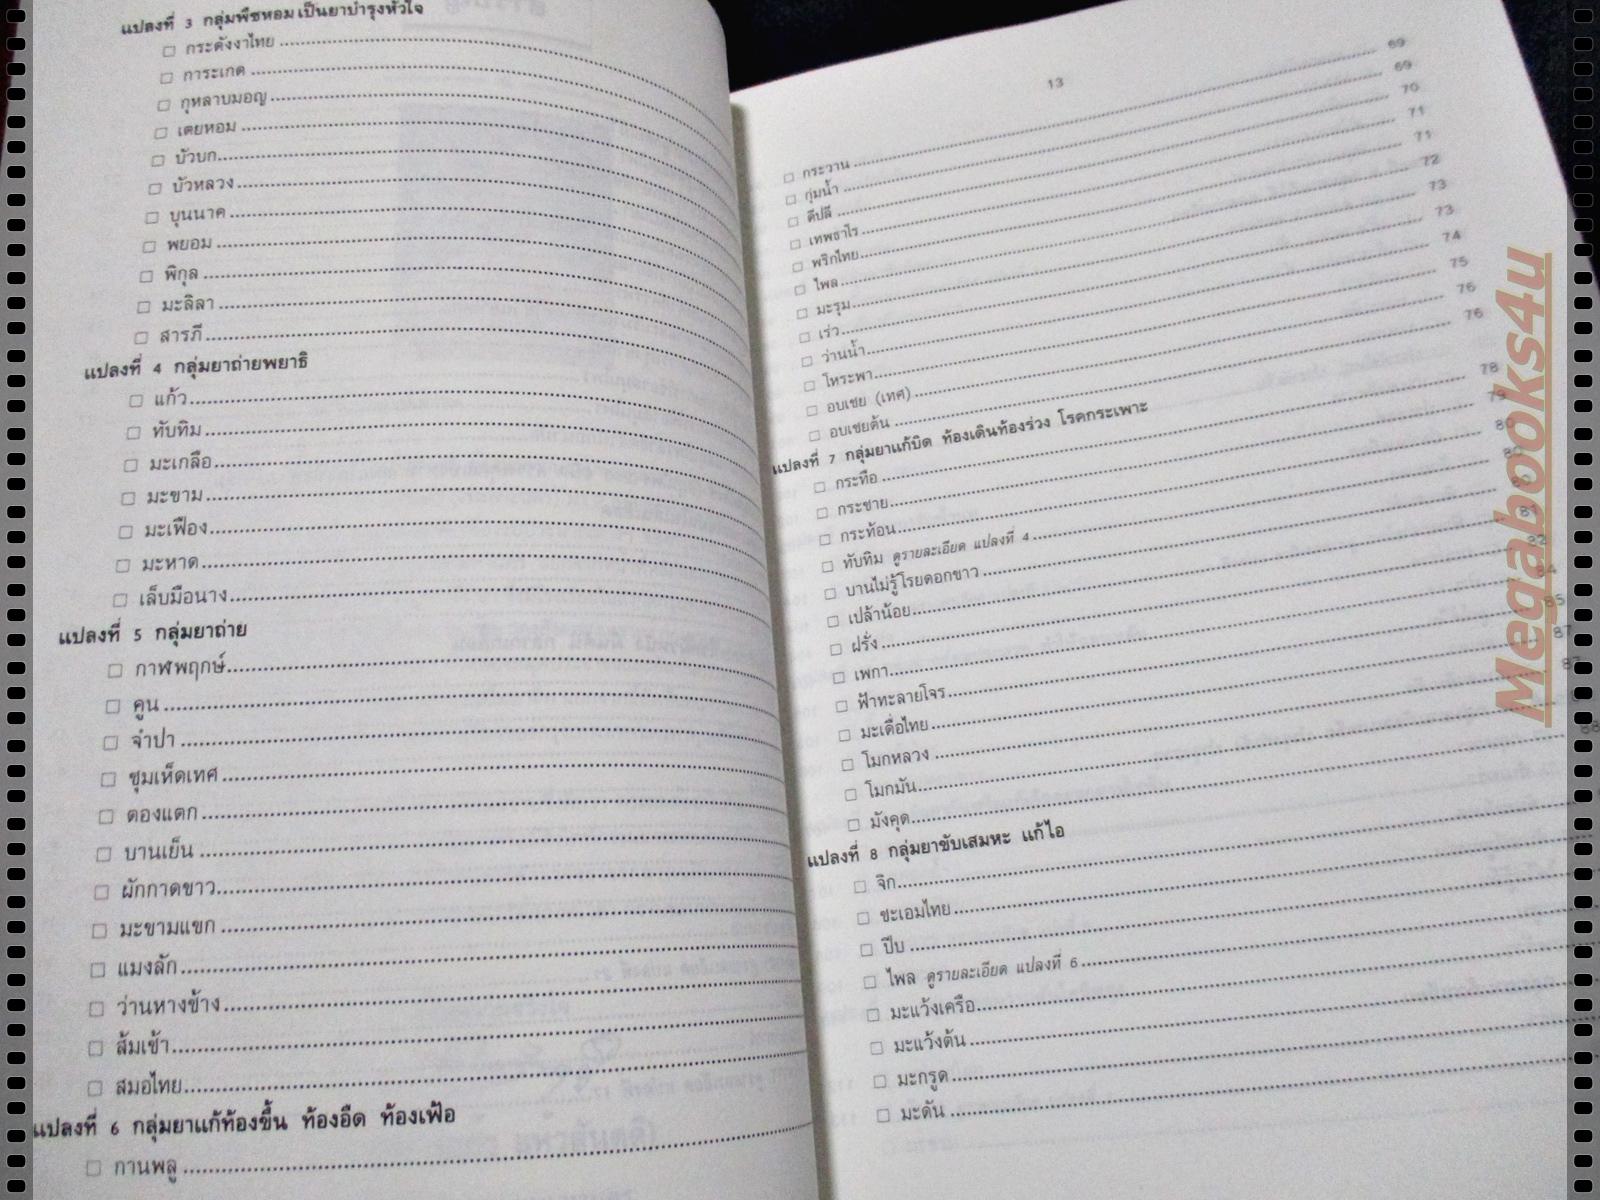 แปลงที่ 3 กลุ่มพืชหอมเป็นยาบำรุงหัวใจ
กระดังงาไทย
การะเกด
กุหลาบมอญ
เตยหอม
บัวบก
บัวหลวง
บุนนาค
พยอม
พิกุล
มะลิลา
สารภี
แปลงที่ 4 กลุ่มยาถ่ายพยาธิ
แก้ว
ทับทิม
มะเกลือ
มะขาม
มะเฟือง
มะหาด
เล็บมือนาง
แปลงที่ 5 กลุ่มยาถ่าย
กาฬพฤกษ์
คูน
จำปา
ชุมเห็ดเทศ
ตองแตก
บานเย็น
ผักกาดขาว
มะขามแขก
แมงลัก
ว่านหางช้าง
ส้มเช้า
สมอไทย
แปลงที่ 6 กลุ่มยาแก้ท้องขึ้น ท้องอืด ท้องเฟ้อ
กานพลู
13
กระวาน 69
กุ่มน้ำ 69
ดีปลี 70
เทพธาโร 71
พริกไทย 71
ไพล 72
มะรุม 73
เร่ว 73
ว่านน้ำ 74
โหระพา 75
อบเชย (เทศ) 76
อบเชยต้น 76
แปลงที่ 7 กลุ่มยาแก้บิด ท้องเดินท้องร่วง โรคกระเพาะ
กระทือ 78
กระชาย 79
กระท้อน 80
ทับทิม ดูรายละเอียด แปลงที่ 4 80
บานไม่รู้โรยดอกขาว 80
เปล้าน้อย 81
ฝรั่ง 82
เพกา 84
ฟ้าทะลายโจร 85
มะเดื่อไทย 87
โมกหลวง 87
โมกมัน
มังคุด 88
แปลงที่ 8 กลุ่มยาขับเสมหะ แก้ไอ
จิก
ชะเอมไทย
ปีบ
ไพล ดูรายละเอียด แปลงที่ 6
มะแว้งเครือ
มะแว้งต้น
มะกรูด
มะดัน
Megabooks4u